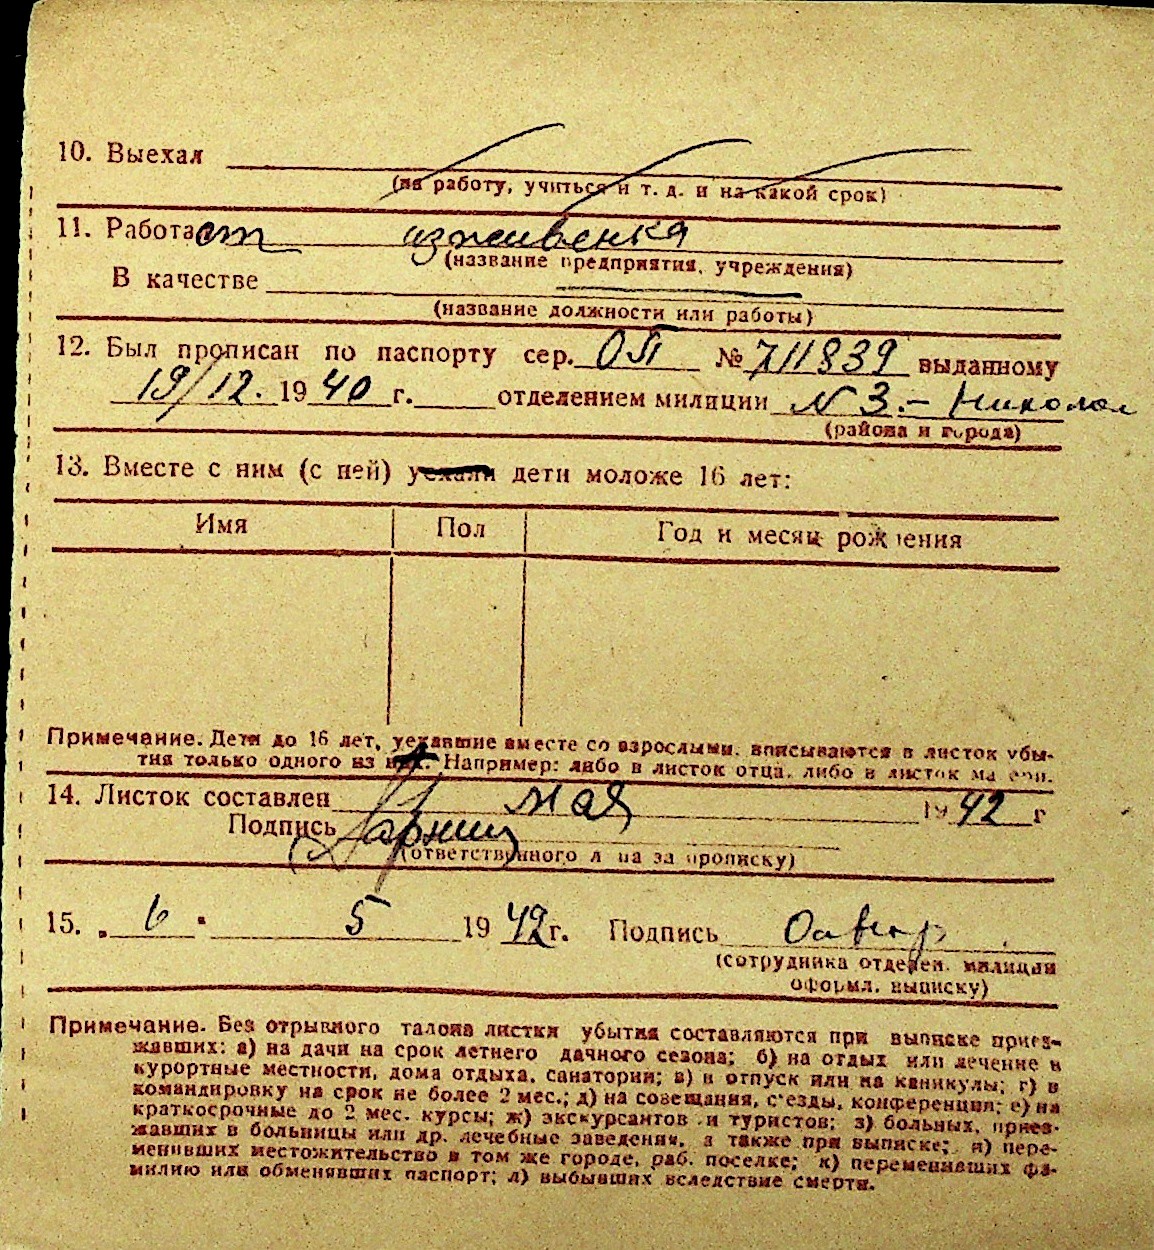 10. Выехал
(на работу, учиться и т. д. и на какой срок)
11. Работает иждивенка
(название предприятия, учреждения)
В качестве
(название должности или работы)
12. Был прописан по паспорту сер. ОП № 711839 выданному
19/12. 1940 г. отделением милиции N 3.- Николая
(района и города)
13. Вместе с ним (с ней) уехали дети моложе 16 лет:
Имя Пол Год и месяц рождения
Примечание. Дети до 16 лет, уехавшие вместе со взрослыми, вписываются в листок убы-
тия только одного из них. Например: либо в листок отца, либо в листок матери.
14. Листок составлен мая 1942 г
Подпись
(ответственного лица за прописку)
15. „6" 5 1942 г. Подпись
(сотрудника отделен. милиции
оформл. выписку)
Примечание. Без отрывного талона листки убытия составляются при выписке приез-
жавших: а) на дачи на срок летнего дачного сезона; б) на отдых или лечение в
курортные местности, дома отдыха, санатории; в) в отпуск или на каникулы; г) в
командировку на срок не более 2 мес.; д) на совещания, с'езды, конференции; е) на
краткосрочные до 2 мес. курсы; ж) экскурсантов и туристов; з) больных, приез-
жавших в больницы или др. лечебные заведения, а также при выписке; и) пере-
менивших местожительство в том же городе, раб. поселке; к) переменивших фа-
милию или обменявших паспорт; л) выбывших вследствие смерти.